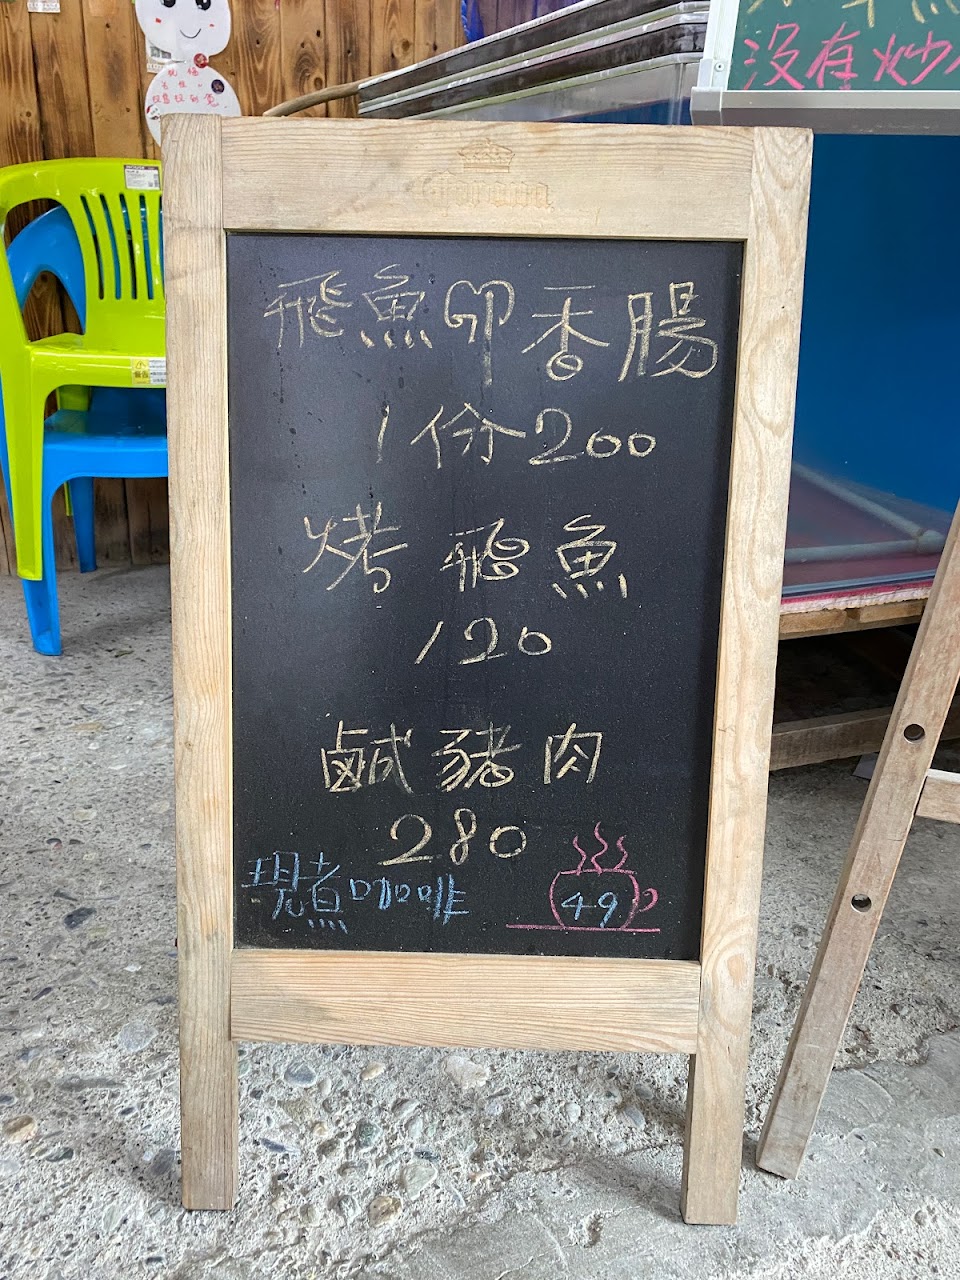 沒有炒
Corona
飛魚卵香腸
1份200
烤飛魚
120
鹹豬肉
280
現煮咖啡
49